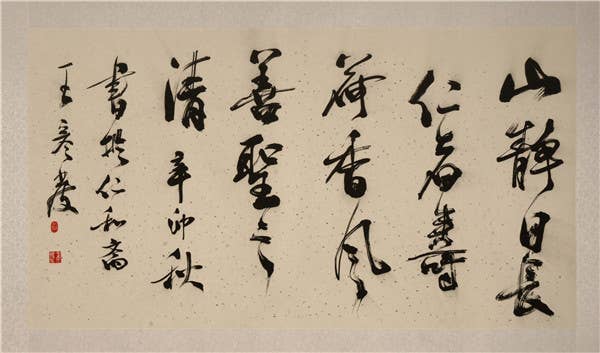 山靜日長
仁者壽
荷香風
善聖之
清 辛卯秋
書於仁和齋
王